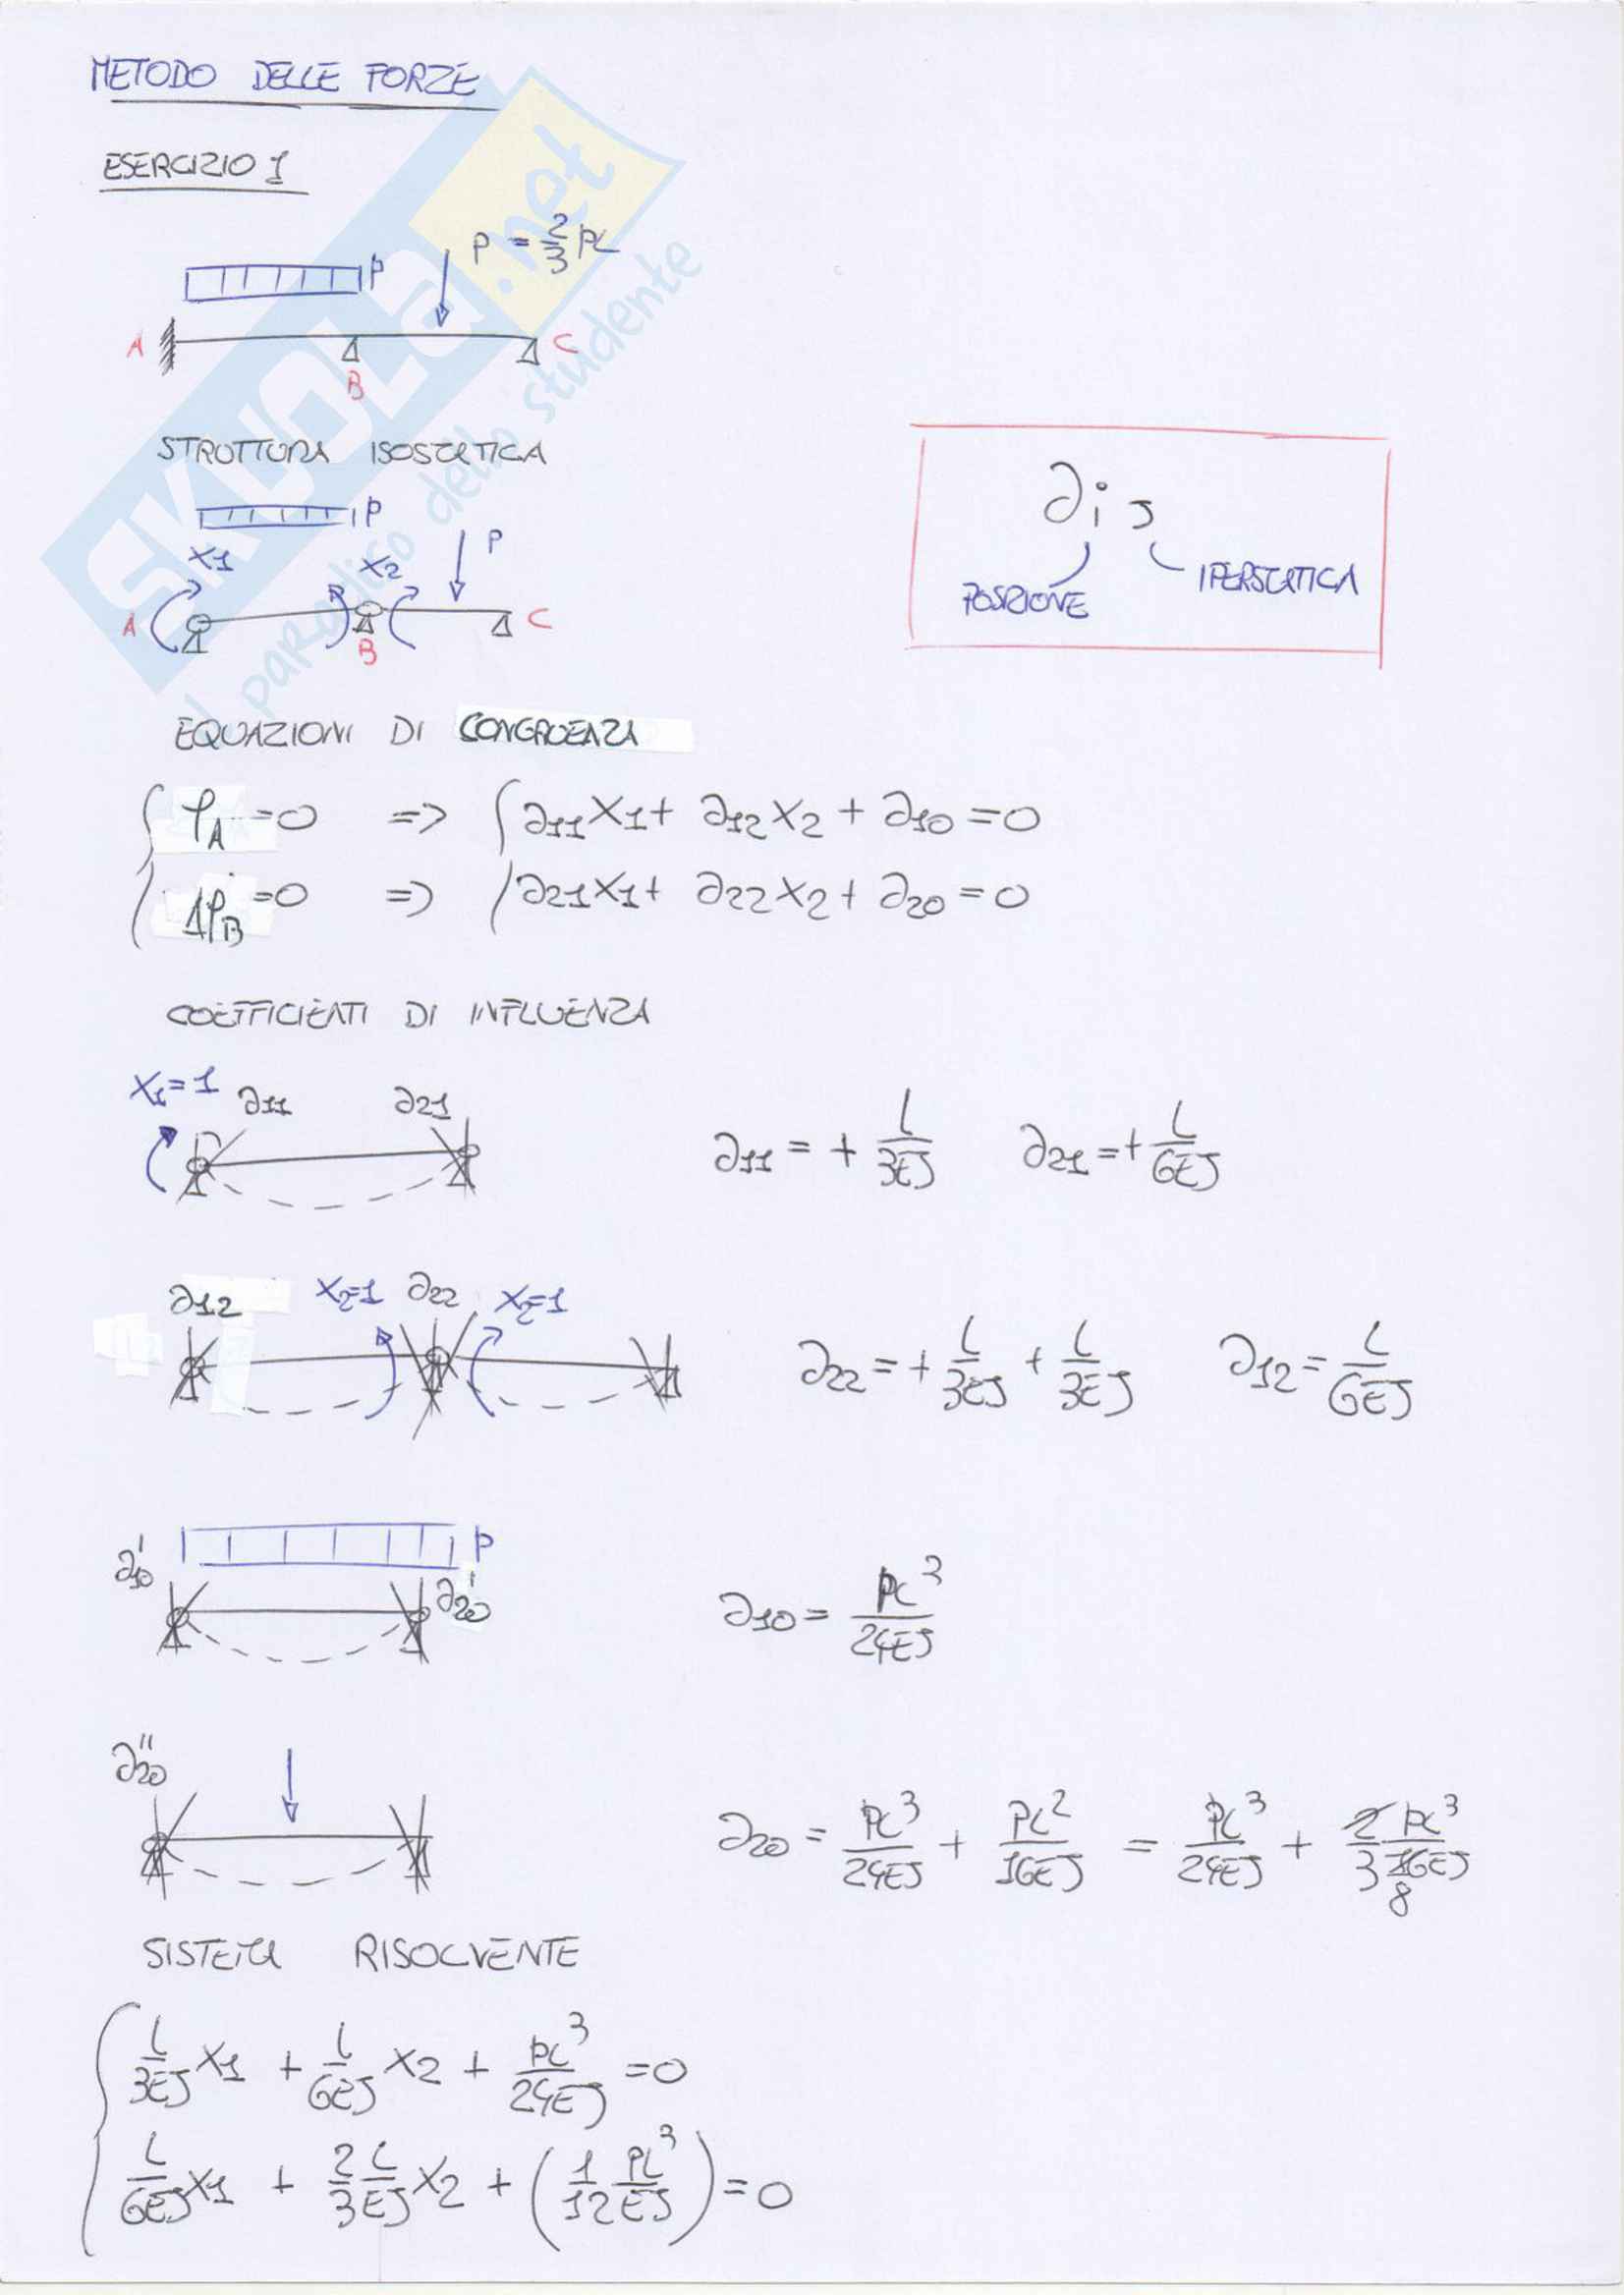 METODO DELLE FORZE
ESERCIZIO 1
SKUOLA.net
il paradiso dello studente
p P = 2/3 pl
A B C
STRUTTURA ISOSTATICA
p
X1 X2 P
A B C
∂ij
POSIZIONE IPERSTATICA
EQUAZIONI DI CONGRUENZA
φA = 0 => ∂11X1 + ∂12X2 + ∂10 = 0
ΔφB = 0 => ∂21X1 + ∂22X2 + ∂20 = 0
COEFFICIENTI DI INFLUENZA
X1=1 ∂11 ∂21
∂11 = + l/3EJ ∂21 = + l/6EJ
∂12 X2=1 ∂22 X2=1
∂22 = + l/3EJ + l/3EJ ∂12 = l/6EJ
∂'10 p ∂'20
∂10 = pl³/24EJ
∂''20
∂20 = pl³/24EJ + Pl²/16EJ = pl³/24EJ + 2/3 pl³/16EJ 8
SISTEMA RISOLVENTE
l/3EJ X1 + l/6EJ X2 + pl³/24EJ = 0
l/6EJ X1 + 2/3 l/EJ X2 + (1/12 pl³/EJ) = 0